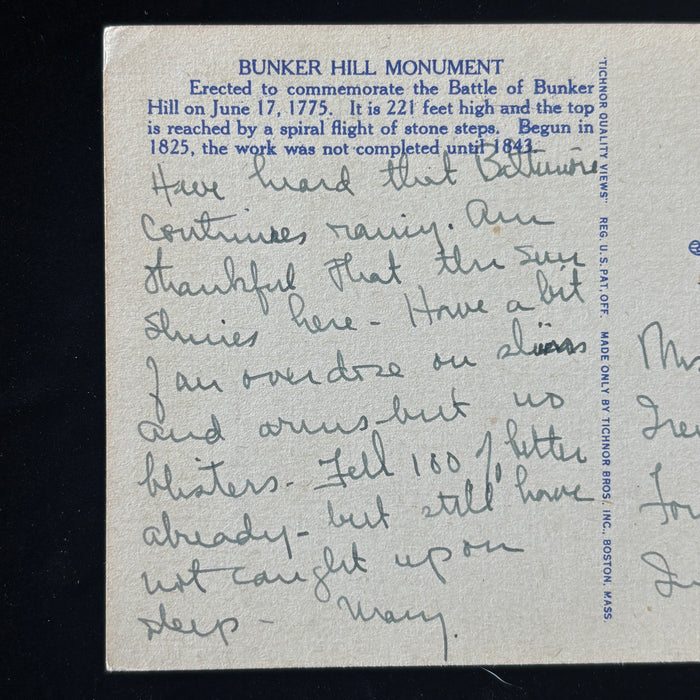 BUNKER HILL MONUMENT
Erected to commemorate the Battle of Bunker
Hill on June 17, 1775. It is 221 feet high and the top
is reached by a spiral flight of stone steps. Begun in
1825, the work was not completed until 1843.
Have heard that Baltimore
continues rainy. Am
thankful that the sun
shines here - Have a bit
of an overdose on shins
and arms - but no
blisters - Fell 100 % better
already - but still have
not caught up on
sleep - Mary.
"TICHNOR QUALITY VIEWS" REG. U.S. PAT. OFF. MADE ONLY BY TICHNOR BROS., INC., BOSTON, MASS.